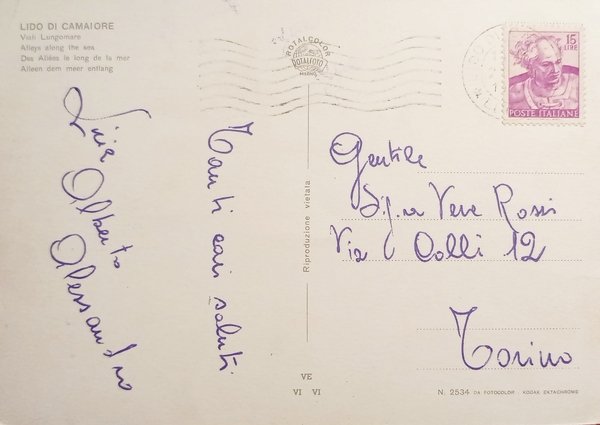 LIDO DI CAMAIORE
Viali Lungomare
Alleys along the sea
Des Allées le long de la mer
Alleen dem meer entlang
ROTALCOLOR
ROTALFOTO
MILANO
15
LIRE
POSTE ITALIANE
Tanti cari saluti
Alberto
Alessandro
Riproduzione vietata
Gentile
Sig.na Vera Rossi
Via Colli 12
Torino
VE
VI VI
N. 2534 DA FOTOCOLOR KODAK EKTACHROME